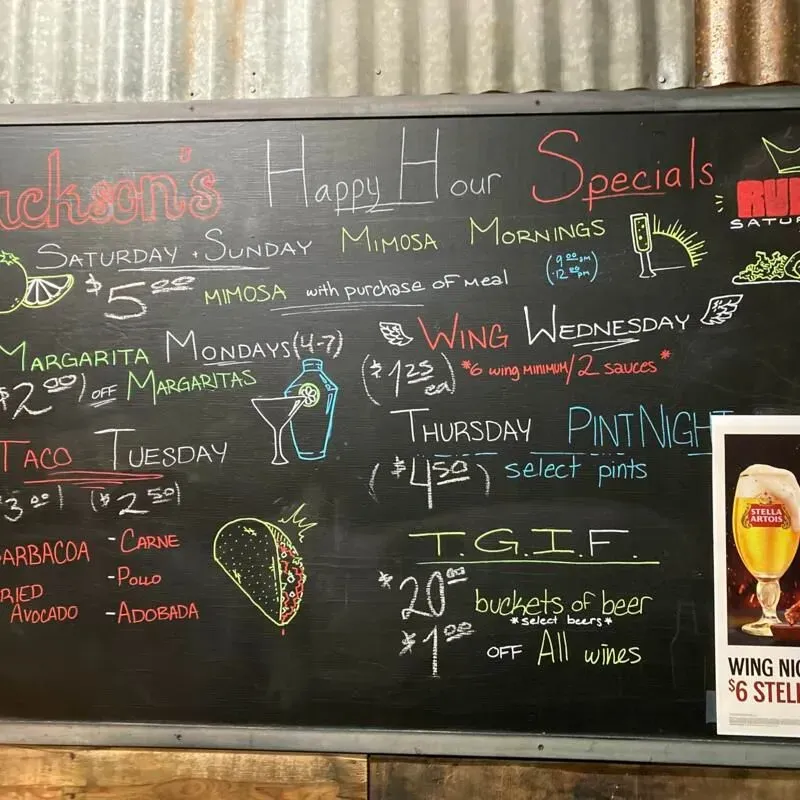 ackson's Happy Hour Specials
SATURDAY + SUNDAY MIMOSA MORNINGS
(9:00 am
12:00 pm)
$5.00 MIMOSA with purchase of meal
MARGARITA MONDAYS (4-7)
$2.00) OFF MARGARITAS
TACO TUESDAY
$3.00) ($2.50)
ARBACOA
RIED
AVOCADO
-CARNE
-POLLO
-ADOBADA
WING WEDNESDAY
($1.25 ea) *6 wing MINIMUM/2 sauces*
THURSDAY PINT NIGH
($4.50) select pints
T.G.I.F.
$20.00 buckets of beer
*select beers*
$1.00 OFF All wines
RU
SATU
STELLA
ARTOIS
WING NI
$6 STEL